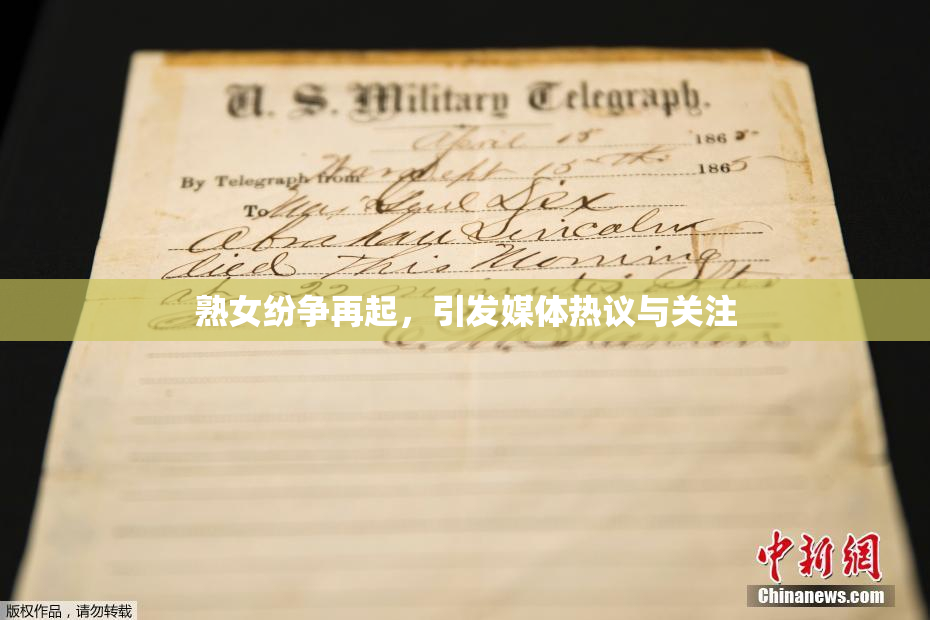 U. S. Military Telegraph.
April 15 1865
By Telegraph from War Dept 15th 1865
To Maj Genl Dix
Abraham Lincoln
died This Morning
at 22 minutes after
熟女纷争再起，引发媒体热议与关注
中新网
Chinanews.com
版权作品，请勿转载